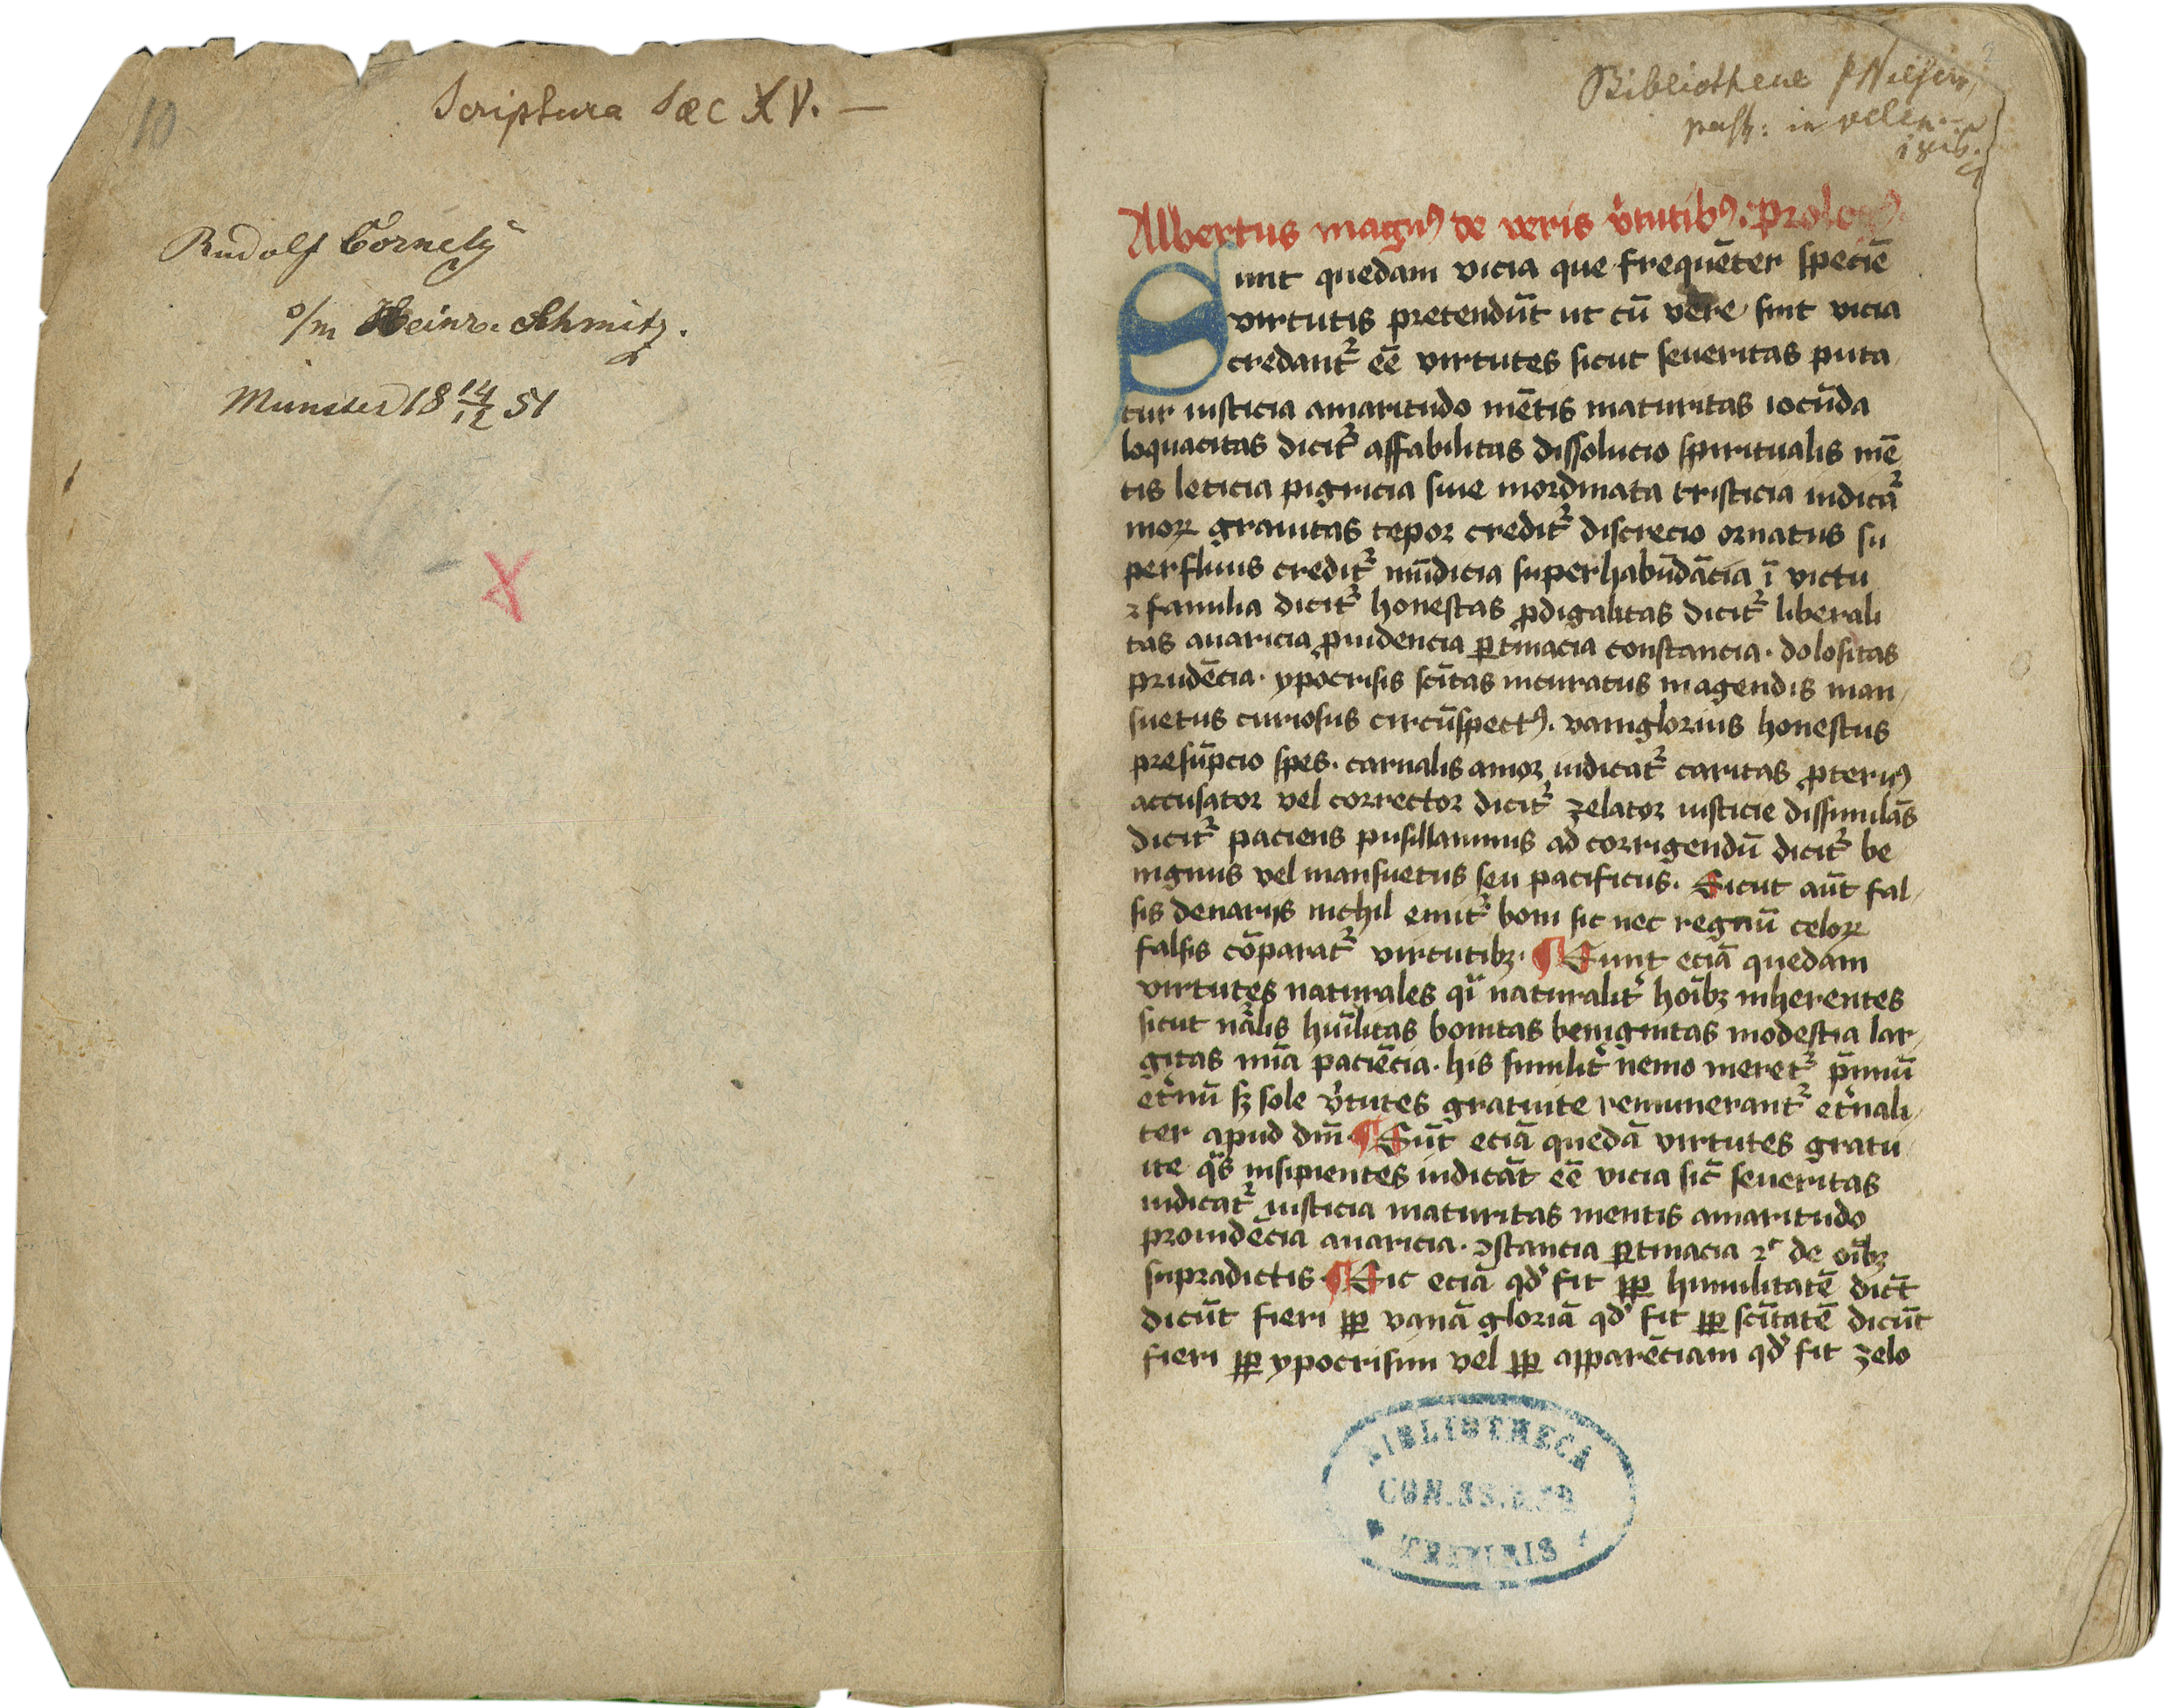 10
Scriptura Sæc XV. —
Rudolf Cornely
o/m Heinr. Schmitz.
Münster 18 14/12 51
Bibliothecae
past: in velen.
Albertus magnꝰ de veris v̓tutibꝰ. Prologꝰ.
Sunt quedam vicia que frequēter speciē
virtutis pretendūt ut cū vere sint vicia
credant᷑ eē virtutes sicut seueritas puta
tur iusticia amaritudo mētis maturitas iocūda
loquacitas dicit᷑ affabilitas dissolucio spiritualis mē
tis leticia pigricia siue inordinata tristicia iudicat᷑
moꝝ grauitas tepor credit᷑ discrecio ornatus su
perfluus credit᷑ mūdicia superhabūdācia ī victu
⁊ familia dicit᷑ honestas ꝓdigalitas dicit᷑ liberali
tas auaricia ꝓuidencia ꝑtinacia constancia. dolositas
prudēcia. ypocrisis sc̄itas incuratus in agendis man
suetus curiosus circūspectꝰ. vaniglorius honestus
presūpcio spes. carnalis amor iudicat᷑ caritas ꝓteruꝰ
accusator vel corrector dicit᷑ zelator iusticie dissimulās
dicit᷑ paciens pusillanimis ad corrigendū dicit᷑ be
nignus vel mansuetus seu pacificus. Sicut aūt fal
sis denarijs nichil emit᷑ boni sic nec regnū celoꝝ
falsis cōparat᷑ virtutibꝫ. ¶ Sunt eciā quedam
virtutes naturales qͥ naturalit᷑ hoībꝫ inherentes
sicut nālis huīlitas bonitas benignitas modestia lar
gitas mīa paciēcia. his similit᷑ nemo meret᷑ p̄miū
et̓nū sꝫ sole v̓tutes gratuite remunerant᷑ et̓nali
ter apud dm̄ ¶ Sūt eciā quedā virtutes gratu
ite qͣs insipientes iudicāt eē vicia sic̄ seueritas
iudicat᷑ iusticia maturitas mentis amaritudo
prouidēcia auaricia. ꝯstancia ꝑtinacia ⁊ͨ de oībꝫ
supradictis ¶ Sic eciā qd̓ fit ꝓꝑ humilitatē dict̄
dicūt fieri ꝓꝑ vanā gloriā qd̓ fit ꝓꝑ sc̄itatē dicūt
fieri ꝓꝑ ypocrisim vel ꝓꝑ apparēciam qd̓ fit zelo
BIBLIOTHECA
CON. SS. R.
TREVIRIS